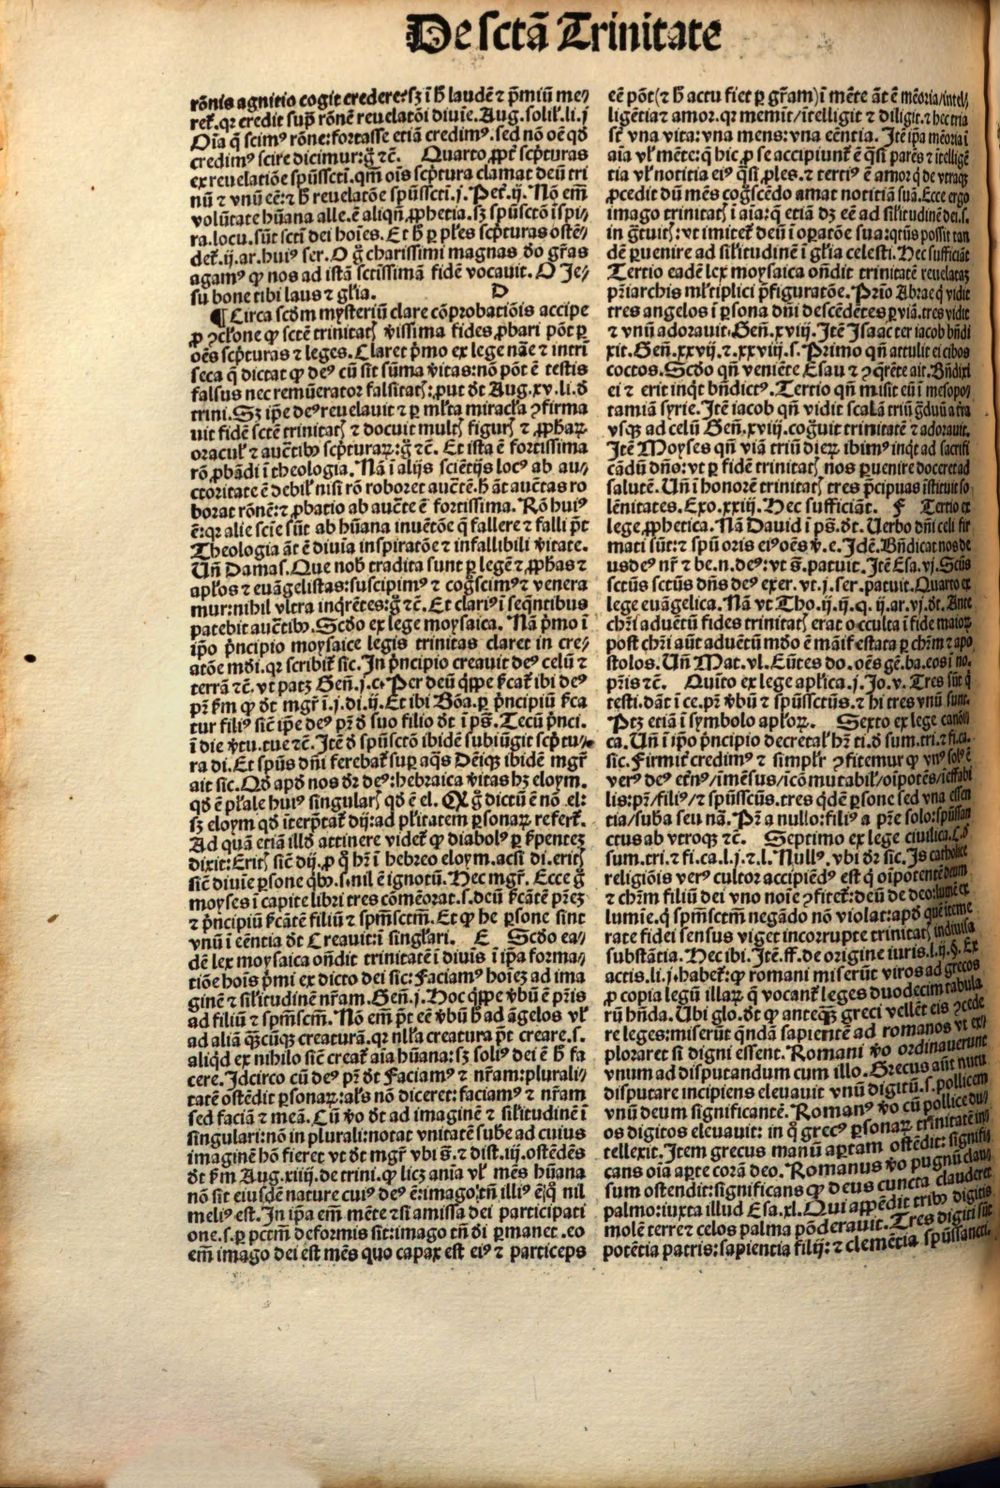 De sctã Trinitate
rõnis agnitio cogit credere: sꝫ ĩ hͦ laudẽ ⁊ p̃miũ me⸗
ret̃. qꝛ credit supꝛ̃ rõnẽ reuelatõi diuie. Aug. solil. li. j
Oĩa q̃ scimꝰ rõne: foꝛtasse etiã credimꝰ. sed nõ oẽ qď
credimꝰ scire dicimur: g̃ ⁊c̃. Quarto ꝓpt̃ sc̃pturas
ex reuelatiõe spũssctĩ. qm̃ oĩs sc̃ptura clamat deũ tri
nũ ⁊ vnũ eẽ: ⁊ hͦ reuelatõe spũssctĩ. j. Pet̃. ij. Nõ em̃
volũtate hũana alle. ẽ aliqñ ꝓphetia. sꝫ spũsctõ ĩspi⸗
ra. locu. sũt sctĩ dei hoĩes. Et hͦ ꝑ pl̃es sc̃pturas ostẽ⸗
det̃. ij. ar. huiꝰ ser. O g̃ charissimi magnas do gr̃as
agamꝰ ꝙ nos ad istã sctissimã fidẽ vocauit. O Je⸗
su bone tibi laus ⁊ gl̃ia. D
¶ Circa scďm mysteriũ clare cõprobatiõis accipe
ꝓ ꝯclõne ꝙ sctẽ trinitatꝭ v̾issima fides ꝓbari põt ꝑ
oẽs sc̃pturas ⁊ leges. Claret p̃mo ex lege nãe ⁊ intrĩ
seca q̃ dictat ꝙ deꝰ cũ sit sũma v̾itas: nõ põt ẽ testis
falsus nec remũerator falsitatꝭ: put ďt Aug. xv. li. ď
trini. Sꝫ ip̃e deꝰ reuelauit ⁊ ꝑ ml̃ta miracl̃a ꝯfirma
uit fidẽ sctẽ trinitatꝭ ⁊ docuit multꝭ figurꝭ ⁊ ꝓphaꝝ
oraculꝭ ⁊ auẽtibꝰ sc̃pturaꝝ: g̃ ⁊c̃. Et ista ẽ fortissima
rõ ꝓbãdi ĩ theologia. Nã ĩ alijs sciẽtijs locꝰ ab au⸗
ctoritate ẽ debil̾ nisi rõ roboret auctẽ. hͦ aũt auctas ro
borat rõnẽ: ⁊ ꝓbatio ab aucte ẽ fortissima. Rõ huiꝰ
ẽ: qꝛ alie scie sũt ab hũana inuẽtõe q̃ fallere ⁊ falli p̃t
Theologia aũt ẽ diuĩa inspiratõe ⁊ infallibili v̾itate.
Uñ Damas. Que nob̾ tradita sunt ꝑ legẽ ⁊ ꝓphas ⁊
apl̃os ⁊ euãgelistas: suscipimꝰ ⁊ cog̃scimꝰ ⁊ venera
mur: nihil vltra inq̃rẽtes: g̃ ⁊c̃. Et clariꝰ ĩ seq̃ntibus
patebit auẽtibꝰ. Scďo ex lege moysaica. Nã p̃mo ĩ
ip̃o p̃ncipio moysaice legis trinitas claret in cre⸗
atõe mũdi. qꝛ scribit̃ sic. In p̃ncipio creauit deꝰ celũ ⁊
terrã ⁊c̃. vt patꝫ Geñ. j. c. Per deũ q̃ppe ꝟcat̃ ibi deꝰ
pr̃ ꝟm ꝙ ďt mgr̃ ĩ. j. di. ij. Et ibi Bõa. ꝑ p̃ncipiũ ꝟca
tur filiꝰ siẽ ip̃e deꝰ pr̃ ď suo filio ďt ĩ ps̃. Tecũ p̃nci.
ĩ die v̾tu. tue ⁊c̃. Itẽ ď spũsctõ ibidẽ subiũgit sc̃ptu⸗
ra di. Et spũs dñi ferebat̃ suꝑ aq̃s Deĩqꝫ ibidẽ mgr̃
ait sic. Qď apď nos ďr deꝰ: hebraica v̾itas hꝫ eloym.
qď ẽ pl̃ale huiꝰ singularꝭ qď ẽ el. Qꝛ g̃ dictũ ẽ nõ el:
sꝫ eloym qď ĩterp̃tat̃ dij: ad pl̃itatem ꝑsonaꝝ refert̃.
Ad quã etiã illď attinere videt̃ ꝙ diabolꝰ ꝑ ꝟpentez
dixit: Eritꝭ siẽ dij. ꝓ q̃ hr̃ ĩ hebreo eloym. acsi di. eritꝭ
siẽ diuie ꝑsone qꝛbꝰ. s. nil ẽ ignotũ. Hec mgr̃. Ecce g̃
moyses ĩ capite libri tres cõmẽorat. s. deũ ꝟcãte prẽꝫ
⁊ p̃ncipiũ ꝟcãte filiũ ⁊ spm̃sctm̃. Et ꝙ he ꝑsone sint
vnũ ĩ eẽntia ďt Creauit: ĩ singl̃ari. E Scďo ea⸗
dẽ lex moysaica oñdit trinitatẽ ĩ diuis ĩ ip̃a forma⸗
tiõe hoĩs p̃mi ex dicto dei sic: Faciamꝰ hoĩeꝫ ad ima
ginẽ ⁊ sil̃itudinẽ nr̃am. Geñ. j. Hoc q̃ppe v̾bũ ẽ pr̃is
ad filiũ ⁊ spm̃sctm̃. Nõ em̃ p̃t eẽ v̾bũ hͦ ad ãgelos vl̾
ad aliã qͣcũqꝫ creaturã. qꝛ nll̃a creatura p̃t creare. s.
aliq̃d ex nihilo siẽ creat̃ aĩa hũana: sꝫ soliꝰ dei ẽ hͦ fa
cere. Idcirco cũ deꝰ pr̃ ďt Faciamꝰ ⁊ nr̃am: plurali⸗
tatẽ ostẽdit ꝑsonaꝝ: al̃s nõ diceret: faciamꝰ ⁊ nr̃am
sed faciã ⁊ meã. Cũ v̾o ďt ad imaginẽ ⁊ sil̃itudinẽ ĩ
singulari: nõ in plurali: notat vnitatẽ sube ad cuius
imaginẽ hõ fieret vt ďt mgr̃ vbi s̃. ⁊ dist. iij. ostẽdẽs
ďt ꝟm Aug. xiiij. de trini. ꝙ licꝫ anĩa vl̾ mẽs hũana
nõ sit eiusdẽ nature cuiꝰ deꝰ ẽ: imago tñ illiꝰ ẽ q̃ nil
meliꝰ est. In ip̃a em̃ mẽte ⁊si amissa dei participati
one. s. ꝑ pctm̃ deformis sit: imago tñ dĩ ꝑmanet. eo
em̃ imago dei est mẽs quo capax est eiꝰ ⁊ particeps
eẽ põt (⁊ hͦ actu fiet ꝑ gr̃am) ĩ mẽte aũt ẽ mẽoria/intel⸗
ligẽtia ⁊ amor. qꝛ memit/ĩtelligit ⁊ diligit. ⁊ hec tria
sũt vna vita: vna mens: vna eẽntia. Itẽ ip̃a mẽoria ĩ
aĩa vl̾ mẽte: q̃ hic ꝓ se accipiunt̃ ẽ q̃si parẽs ⁊ ĩtelligẽ
tia vl̾ notitia eiꝰ q̃si ꝓles. ⁊ tertiꝰ ẽ amor q̃ de vtraqꝫ
ꝓcedit dũ mẽs cog̃scẽdo amat notitiã suã. Ecce ergo
imago trinitatꝭ ĩ aĩa: q̃ etiã dꝫ eẽ ad sil̃itudinẽ dei. s.
in g̃tuitꝭ: vt imitet̃ deũ ĩ oꝑatõe sua: qͣtũs possit tan
dẽ ꝑuenire ad sil̃itudinẽ ĩ gl̃ia celesti. Hec sufficiãt
Tertio eadẽ lex moysaica oñdit trinitatẽ reuelataꝫ
pr̃iarchis ml̃tiplici p̃figuratõe. Prĩo Abrae q̃ vidit
tres angelos ĩ ꝑsona dñi descẽdẽtes ꝑ viã. tres vidit
⁊ vnũ adorauit. Geñ. xviij. Itẽ Isaac ter iacob bñdi
xit. Geñ. xxvij. ⁊ xxviij. s. Primo qñ attulit ei cibos
coctos. Scďo qñ veniẽte Esau ⁊ ꝯq̃rẽte ait. Bñdixi
ei ⁊ erit inq̃t bñdictꝰ. Tertio qñ misit eũ ĩ mesopo⸗
tamiã syrie. Itẽ iacob qñ vidit scalã triũ g̃duũ a fra
vsqꝫ ad celũ Geñ. xviij. cog̃uit trinitatẽ ⁊ adorauit.
Itẽ Moyses qñ viã triũ dieꝝ ibimꝰ inq̃t ad sacrifi
cãdũ dño: vt ꝑ fidẽ trinitatꝭ nos ꝑuenire doceret ad
salutẽ. Uñ ĩ honorẽ trinitatꝭ tres p̃cipuas ĩstituit so
lẽnitates. Exo. xxiij. Hec sufficiãt. F Tertio ex
lege ꝓphetica. Nã Dauid ĩ ps̃. ďt. Uerbo dñi celi fir
mati sũt: ⁊ spũ oris eiꝰ oẽs v̾. e. Idẽ. Bñdicat nos de
us deꝰ nr̃ ⁊ be. n. deꝰ: vt s̃. patuit. Itẽ Esa. vj. Sctũs
sctũs sctũs dñs deꝰ exer. vt. j. ser. patuit. Quarto ex
lege euãgelica. Nã vt Tho. ij. ij. q. ij. ar. vj. ďt. Ante
chr̃i aduẽtũ fides trinitatꝭ erat occulta ĩ fide maioꝝ
post chr̃i aũt aduẽtũ mũdo ẽ manifestata ꝑ chr̃m ⁊ apo
stolos. Uñ Mat. vl. Eũtes do. oẽs gẽ. ba. eos ĩ no.
pr̃is ⁊c̃. Quĩto ex lege apl̃ica. j. Jo. v. Tres sũt q̃
testi. dãt ĩ ce. pr̃ v̾bũ ⁊ spũssctũs. ⁊ hi tres vnũ sunt.
Ptꝫ etiã ĩ symbolo apl̃oꝝ. Sexto ex lege canõi
ca. Uñ ĩ ip̃o p̃ncipio decretaľ hr̃ ti. ď sum. tri. ⁊ fi. ca.
sic. Firmit̃ credimꝰ ⁊ simpl̃r ꝯfitemur ꝙ vnꝰ solꝰ ẽ
verꝰ deꝰ et̃nꝰ/ĩmẽsus/icõmutabil̾/oĩpotẽs/ĩeffabi
lis: pr̃/filiꝰ/⁊ spũsscũs. tres q̃dẽ ꝑsone sed vna essen
tia/suba seu nã. Pr̃ a nullo: filiꝰ a pr̃e solo: spũssan
ctus ab vtroqꝫ ⁊c̃. Septimo ex lege ciuilica. C. ď
sum. tri. ⁊ fi. ca. l. j. ⁊ l. Nullꝰ. vbi ďr sic. Is catholice
religiõis verꝰ cultor accipiẽdꝰ est q̃ oĩpotentẽ deum
⁊ chr̃m filiũ dei vno noĩe ꝯfitet̃: deũ de deo: lumẽ ex
lumie. q̃ spm̃sctm̃ negãdo nõ violat: apď quẽ iteme
rate fidei sensus viget incorrupte trinitatꝭ indiuisa
substãtia. Hec ibi. Itẽ. ff. de origine iuris. l. ij. §. Ex
actis. li. j. habet̃: ꝙ romani miserũt viros ad grecos
ꝓ copia legũ illaꝝ q̃ vocant̃ leges duodecim tabula
rũ hñda. Ubi glo. ďt ꝙ anteqͣꝫ greci vellẽt eis ꝯcede
re leges: miserũt qñdã sapientẽ ad romanos vt ex⸗
ploraret si digni essent. Romani v̾o ordinauerunt
vnum ad disputandum cum illo. Grecus aũt nutu
disputare incipiens eleuauit vnũ digitũ. s. pollicem
vnũ deum significantẽ. Romanꝰ v̾o cũ pollice du⸗
os digitos eleuauit: in q̃ grecꝰ ꝑsonaꝝ trinitatẽ in⸗
tellexit. Item grecus manũ aꝑtam ostẽdit: signifi
cans oĩa aꝑte corã deo. Romanus v̾o pugnũ clau⸗
sum ostendit: significans ꝙ deus cuncta clauderet
palmo: iuxta illud Esa. xl. Qui appẽdit tribꝰ digitis
molẽ terre ⁊ celos palma põderauit. Tres digiti sũt
potẽtia patris: sapientia filij: ⁊ clemẽtia spũssancti.